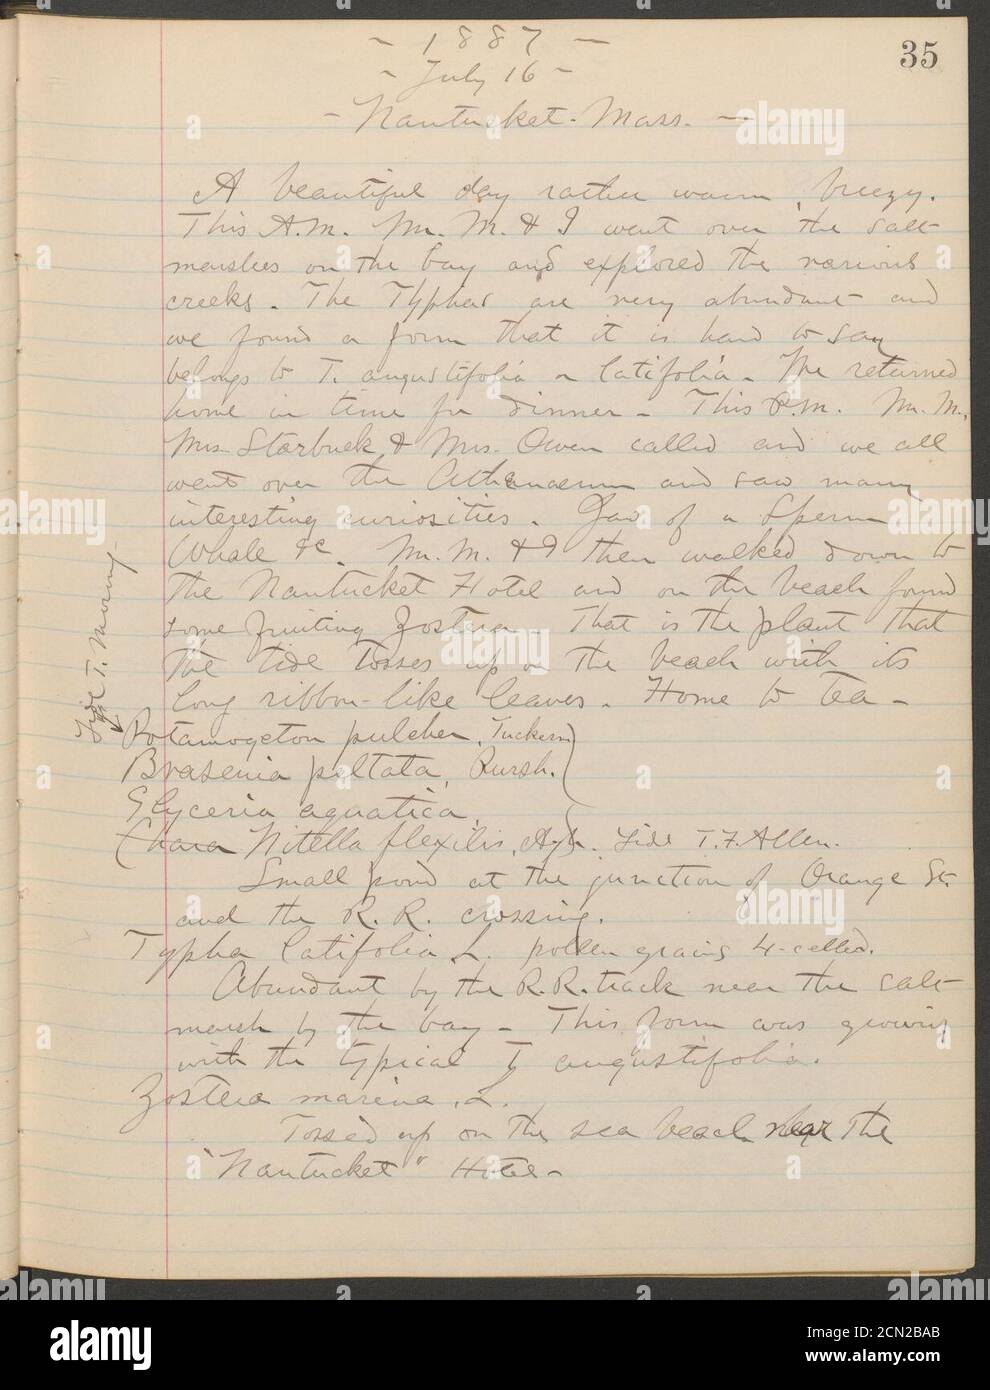 35
- 1887 -
- July 16 -
- Nantucket. Mass. -
A beautiful day rather warm, breezy.
This A.M. Mr. M. & I went over the salt
marshes on the bay and explored the various
creeks. The Typhas are very abundant and
we found a form that it is hard to say
belongs to T. angustifolia or latifolia. We returned
home in time for dinner - This P.M. Mr. M.,
Mrs. Starbuck & Mrs. Owen called and we all
went over the Athenaeum and saw many
interesting curiosities. Jaw of a Sperm
Whale &c. Mr. M. & I then walked down to
the Nantucket Hotel and on the beach found
some fruiting Zostera. That is the plant that
the tide tosses up on the beach with its
long ribbon-like leaves. Home to tea -
Fide T. Morong
Potamogeton pulcher, Tuckerm
Brasenia peltata, Pursh.
Glyceria aquatica,
Chara Nitella flexilis, Ag. Fide T.F. Allen.
Small pond at the junction of Orange St.
and the R. R. crossing.
Typha latifolia, L. pollen grains 4-celled.
Abundant by the R.R. track near the salt
marsh by the bay - This form was growing
with the typical T. angustifolia.
Zostera marina, L.
Tossed up on the sea beach near the
"Nantucket" Hotel -
alamy
Image ID: 2CN2BAB
www.alamy.com